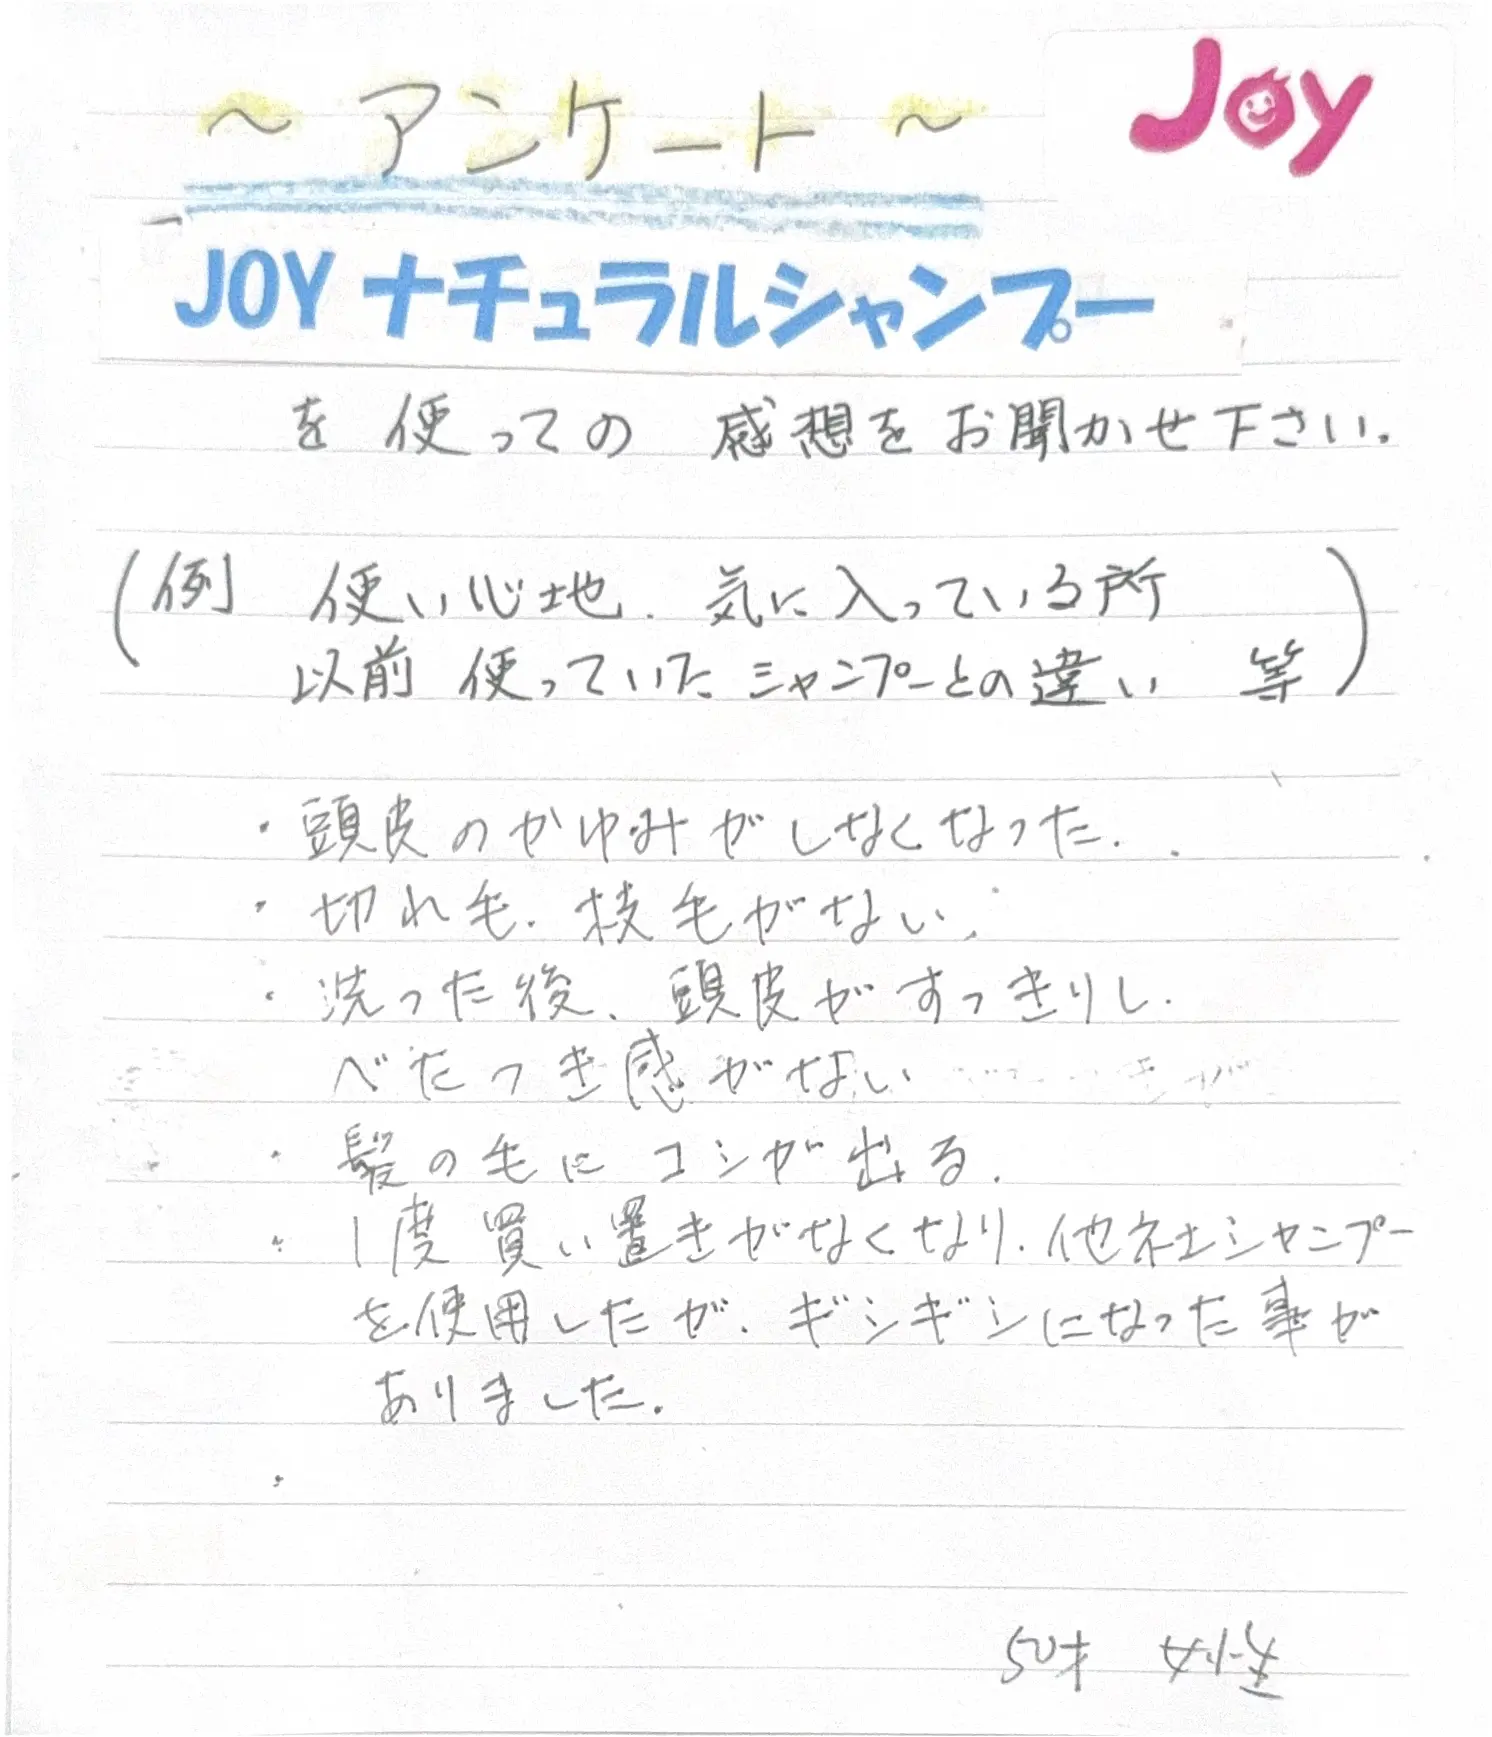 ～アンケート～
Joy
JOY ナチュラルシャンプー
を使っての 感想をお聞かせ下さい。
(例 使い心地、気に入っている所
以前 使っていたシャンプーとの違い 等)
・頭皮のかゆみがしなくなった。
・切れ毛、枝毛がない。
・洗った後、頭皮がすっきりし、
べたつき感がない
・髪の毛にコシが出る。
・1度買い置きがなくなり、他社シャンプー
を使用したが、ギシギシになった事が
ありました。
・
50才 女性